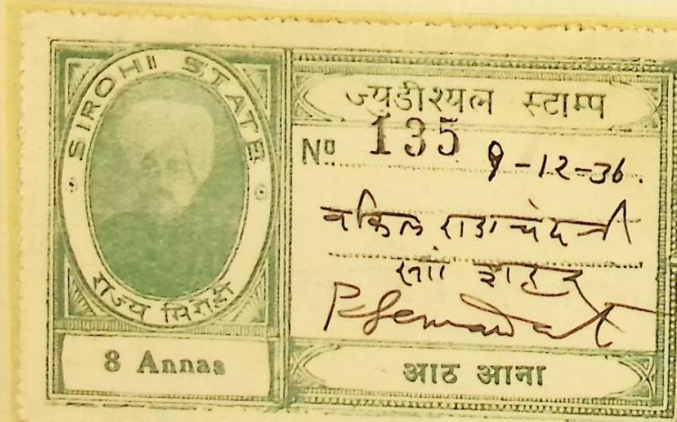 SIROHI STATE
राज्य सिरोही
8 Annas
ज्युडीश्यल स्टाम्प
Nº 135 9-12-36.
वकिल
आठ आना